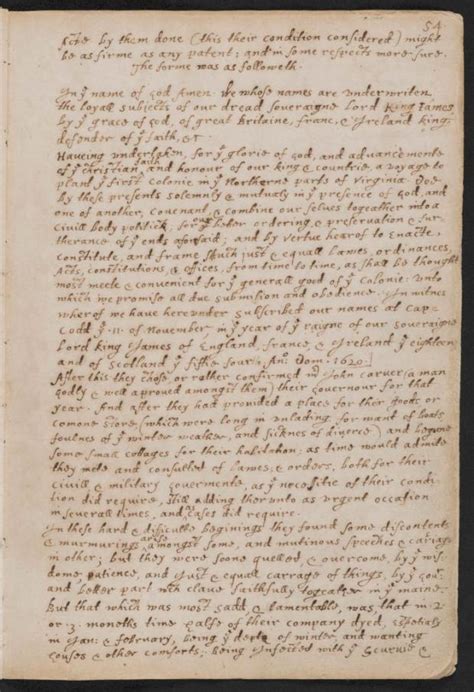 54
Acte by them done (this their condition considered) might
be as firme as any patent; and in some respects more sure.
The forme was as followeth.
In yͤ name of God Amen. We whose names are underwriten,
the loyall subjects of our dread soveraigne Lord King James
by yͤ grace of God, of great Britaine, franc, & Ireland king,
defender of yͤ faith, &c
Haveing undertaken, for yͤ glorie of God, and advancemente
of yͤ christian faith and honour of our king & countrie, a voyage to
plant yͤ first colonie in yͤ Northerne parts of Virginia. Doe
by these presents solemnly & mutualy in yͤ presence of God, and
one of another, covenant, & combine our selves togeather into a
Civill body politick; for our better ordering, & preservation & fur-
therance of yͤ ends aforesaid; and by vertue hearof to enacte,
constitute, and frame shuch just & equall lawes, ordinances,
Acts, constitutions, & offices, from time to time, as shall be thought
most meete & convenient for yͤ generall good of yͤ Colonie: unto
which we promise all due submission and obedience. In witnes
wherof we have hereunder subscribed our names at Cap-
Codd yͤ .11. of November, in yͤ year of yͤ raigne of our soveraigne
Lord king James of England, france, & Ireland yͤ eighteenth
and of Scotland yͤ fiftie fourth. Anͦ: Dom. 1620.
After this they chose, or rather confirmed mr John Carver (a man
godly & well approved amongst them) their governour for that
year. And after they had provided a place for their goods, or
comone store, (which were long in unlading for want of boats,
foulnes of yͤ winter weather, and sicknes of diverce) and begune
some small cottages for their habitation; as time would admitte
they mete and consulted of lawes, & orders, both for their
civill & military govermente, as yͤ necessitie of their condi-
tion did require, still adding therunto as urgent occasion
in severall times, and as cases did require.
In these hard & difficulte beginings they found some discontents
& murmurings arise amongst some, and mutinous speeches & cariags
in other; but they were soone quelled, & overcome, by yͤ wis-
dome, patience, and just & equall carrage of things, by yͤ Govr
and better part wch clave faithfully togeather in yͤ maine.
But that which was most sadd, & lamentable, was, that in .2.
or .3. moneths time halfe of their company dyed, espetialy
in Jan: & february, being yͤ depth of winter, and wanting
houses & other comforts; being Infected with yͤ Scurvie &